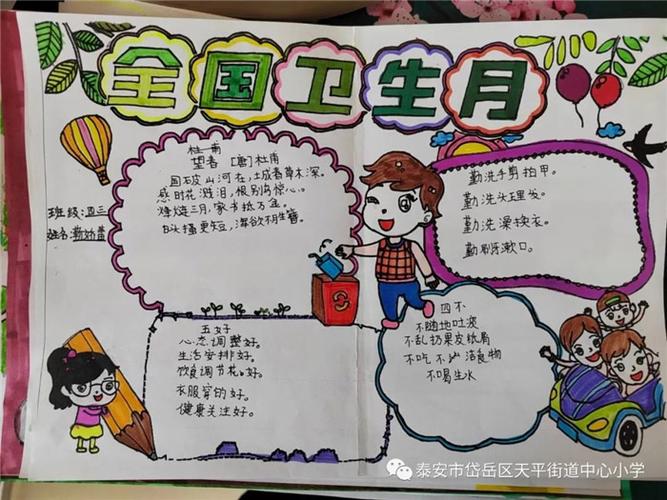 全国卫生月
班级:四三
姓名:靳妙蕾
杜甫
望春 [唐]杜甫
国破山河在,土成春草木深。
感时花溅泪,恨别鸟惊心。
烽火三月,家书抵万金。
白头搔更短,浑欲不胜簪。
勤洗手剪指甲。
勤洗头理发。
勤洗澡换衣。
勤刷牙漱口。
五好
心态调整好。
生活安排好。
饮食调节好。
衣服穿的好。
健康关注好。
四不
不随地吐痰
不乱扔果皮纸屑
不吃不洁食物
不喝生水
泰安市岱岳区天平街道中心小学